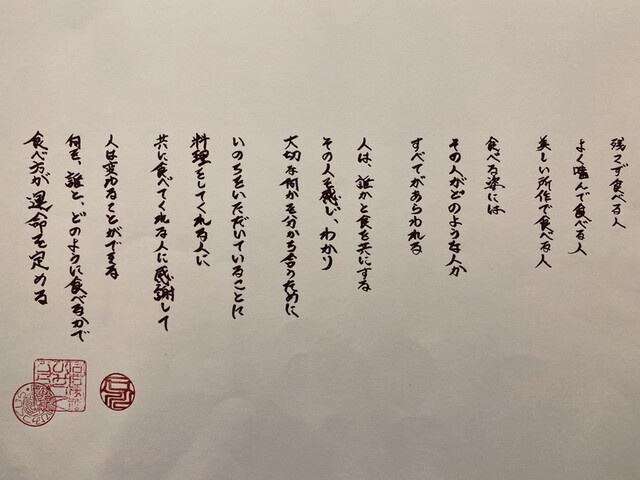 残さず食べる人
よく噛んで食べる人
美しい所作で食べる人
食べる姿には
その人がどのような人か
すべてがあらわれる
人は、誰かと食を共にする
その人を感じ、わかり
大切な何かを分かち合うために
いのちをいただいていることに
料理をしてくれる人に
共に食べてくれる人に感謝して
人は変わることができる
何を、誰と、どのように食べるかで
食べ方が運命を定める